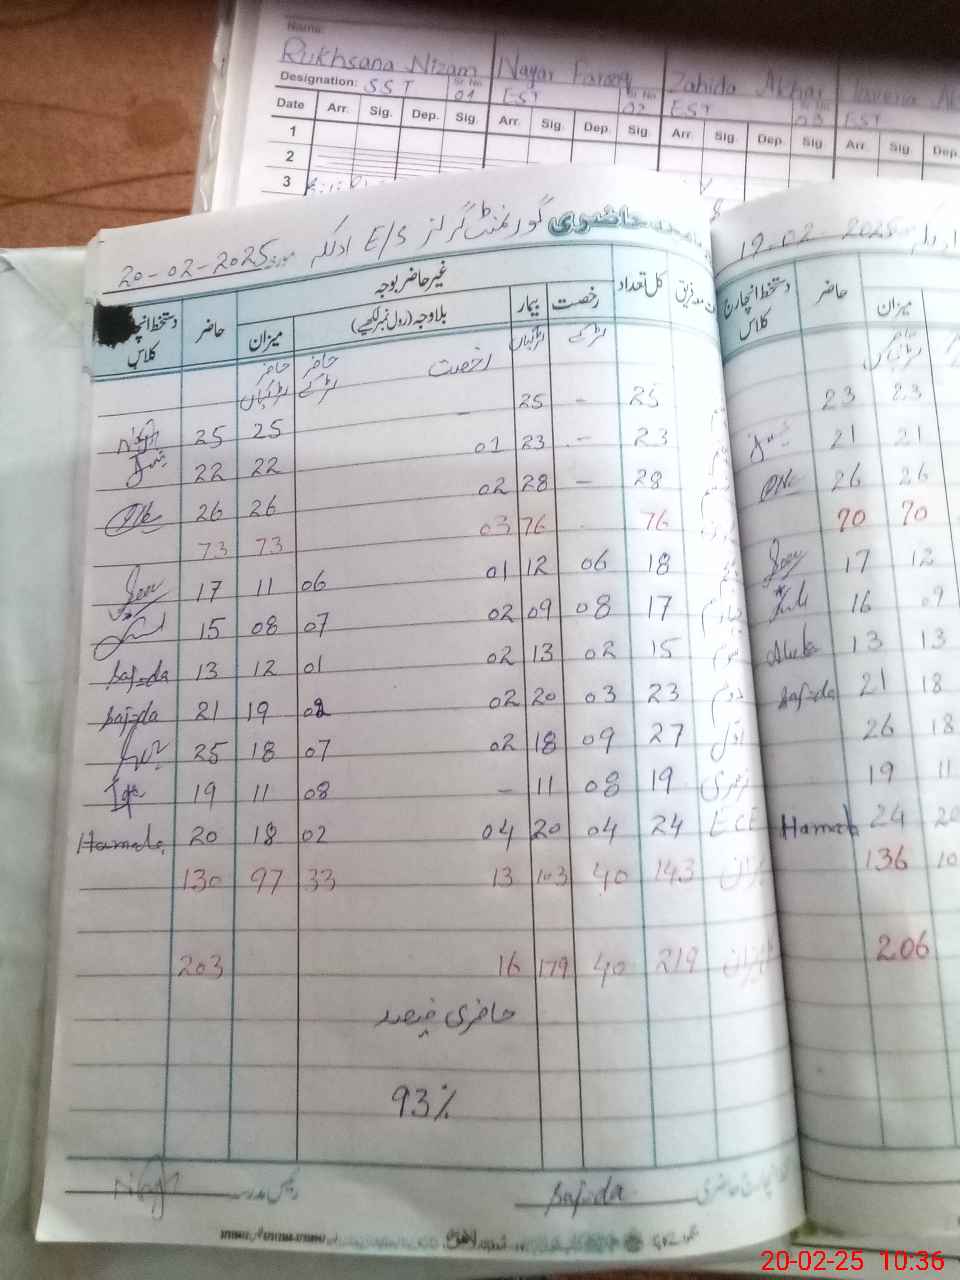 Name:
Rukhsana Nizam Nagar Farooq Zahida Akhar
Designation: SST Sr No 01 EST Sr No 02 EST Sr No 03 EST
Date Arr. Sig. Dep. Sig. Arr. Sig. Dep. Sig. Arr. Sig. Dep. Sig. Arr. Sig. Dep.
1
2
3
حاضری گورنمنٹ گرلز E/S 20-02-2025
کل تعداد رخصت بیمار غیر حاضر بوجہ بلاوجہ (رول نمبر لکھیے) میزان حاضر دستخط انچارج کلاس
لڑکے لڑکیاں رخصت حاضر لڑکے حاضر لڑکیاں
25 - 25 - 25 25
23 - 23 01 22 22
28 - 28 02 26 26
76 76 03 73 73
18 06 12 01 06 11 17
17 08 09 02 07 08 15
15 02 13 02 01 12 13 Sajida
23 03 20 02 02 19 21 Sajida
اول 27 09 18 02 07 18 25
نرسری 19 08 11 - 08 11 19
ECE 24 04 20 04 02 18 20 Hamala
میزان 143 40 103 13 33 97 130
میزان 219 40 179 16 203
حاضری فیصد
93%
Sajida
رئیس مدرسہ
19-02-2025
میزان حاضر دستخط انچارج کلاس
حاضر لڑکیاں
23 23
21 21
26 26
70 70
12 17
09 16
13 13
18 21 Sajida
18 26
11 19
20 24
10 136
206
20-02-25 10:36